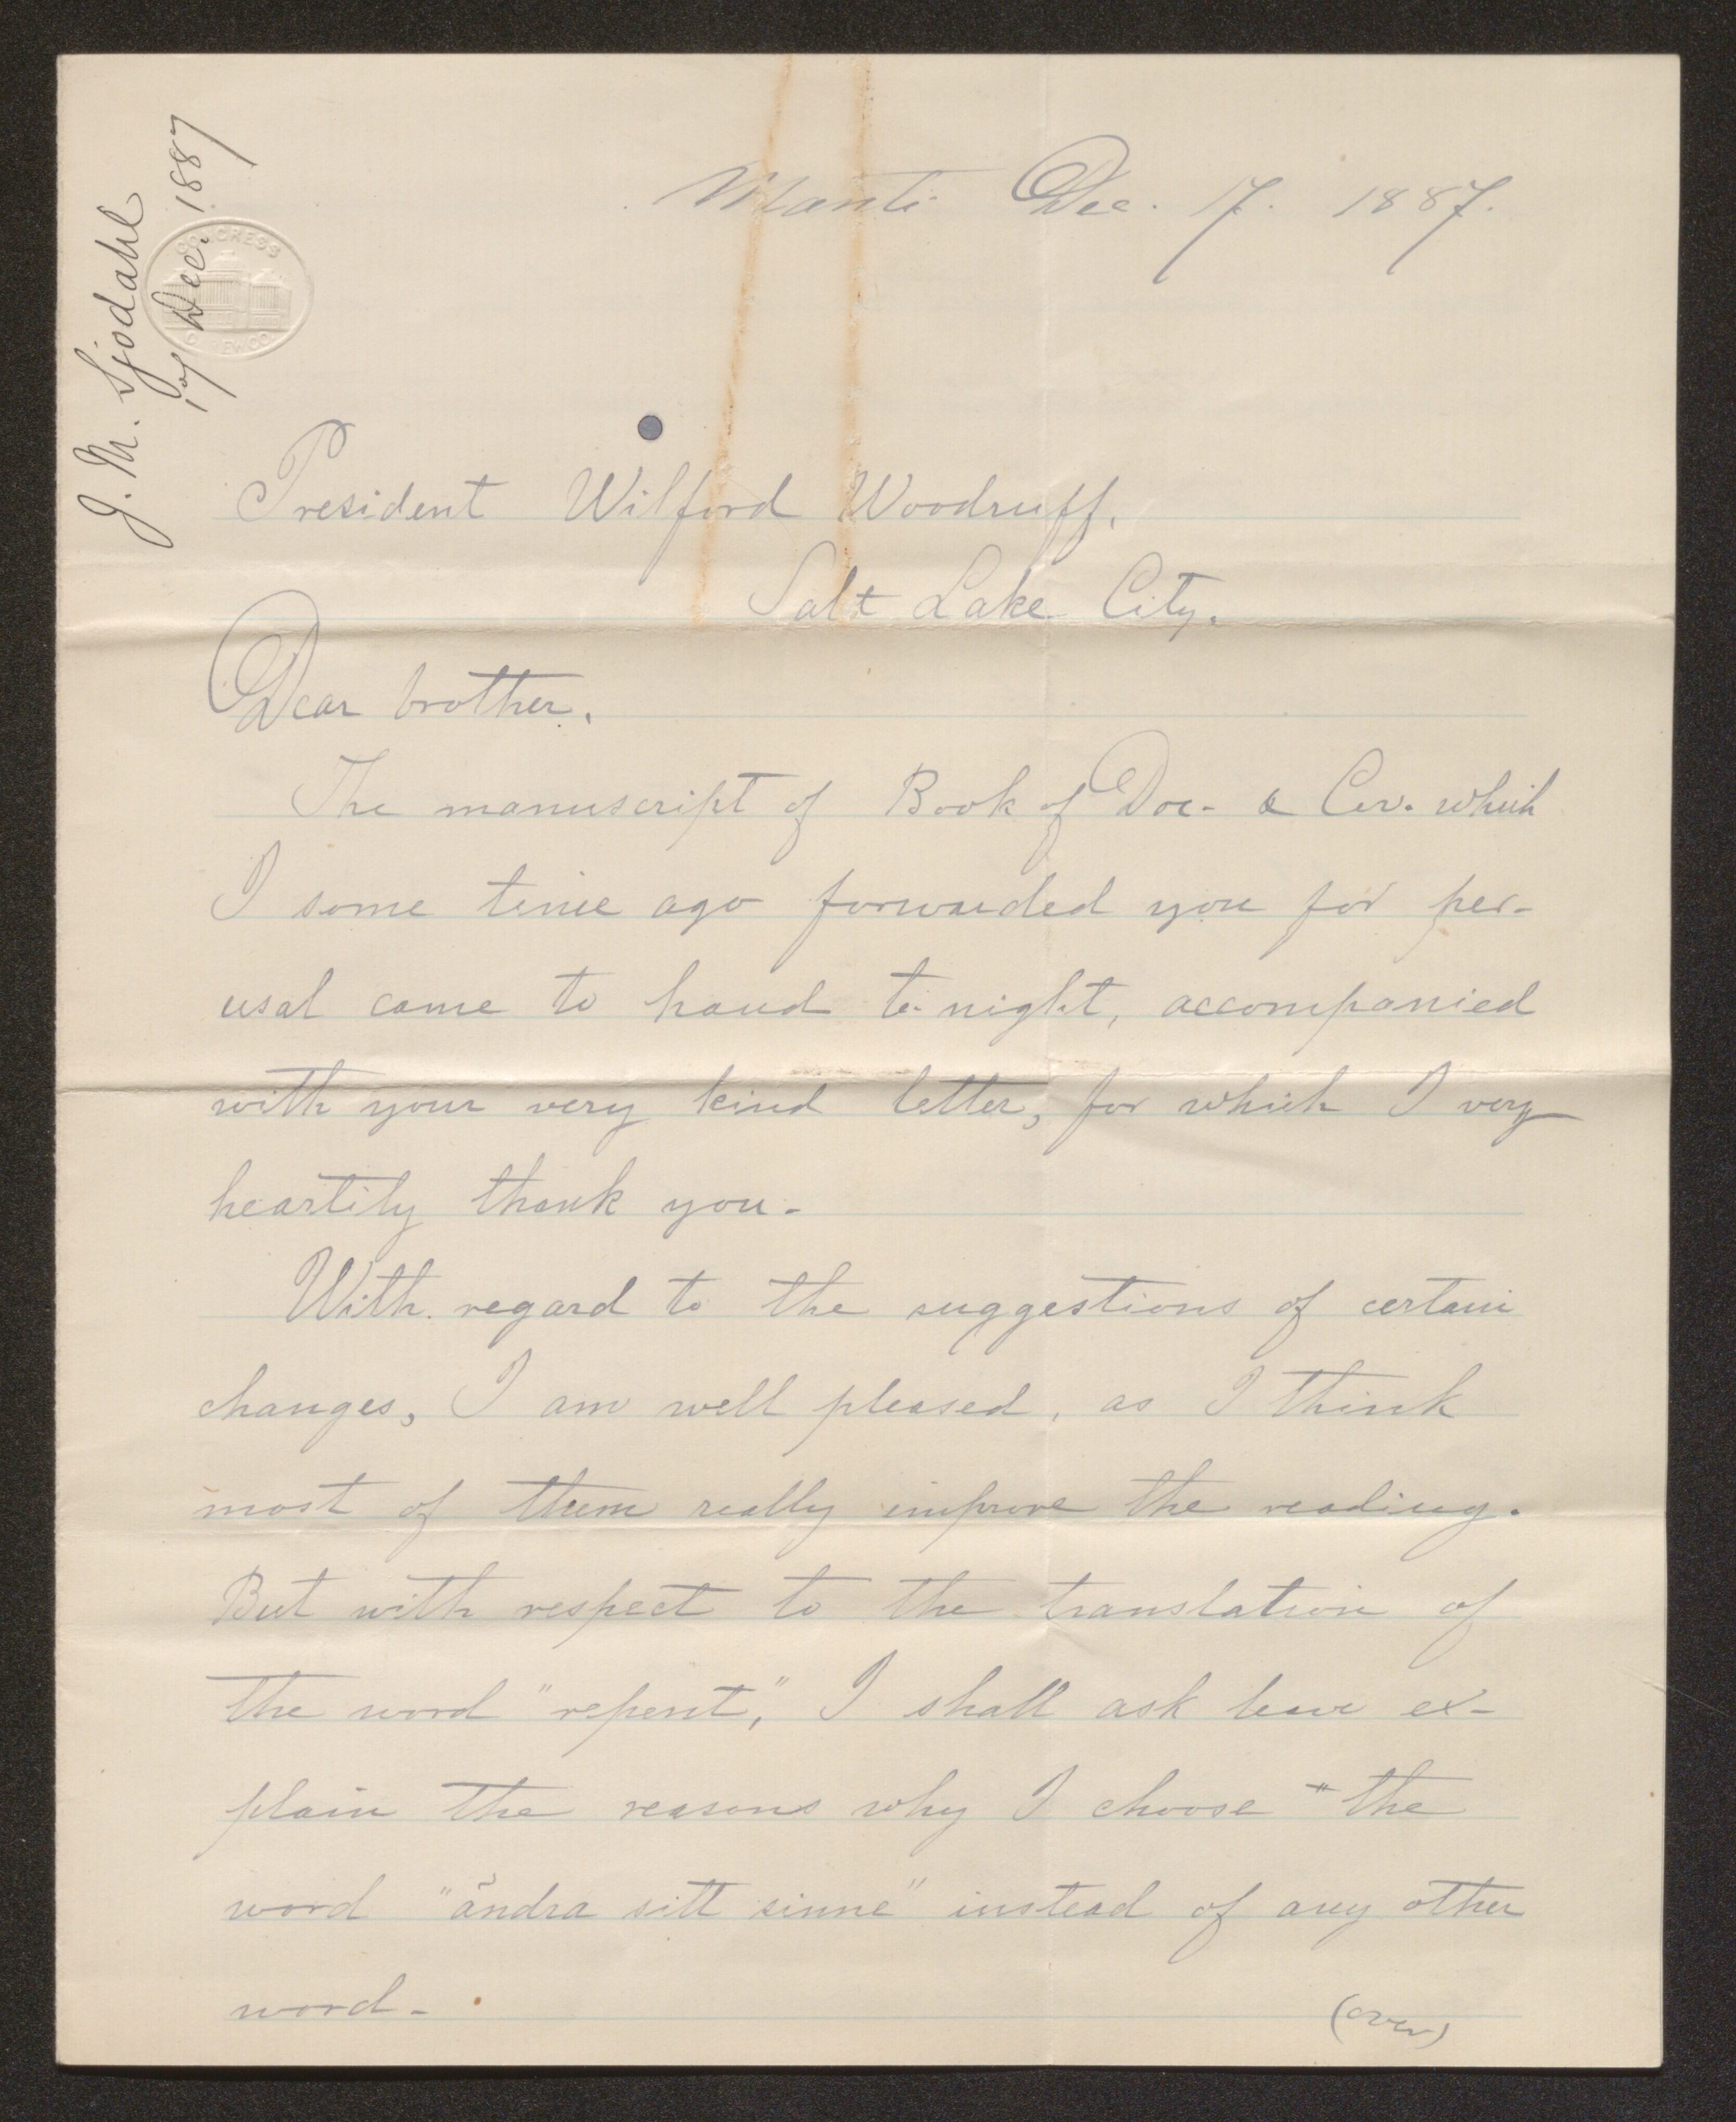 J. M. Sjodahl
17 Dec. 1887
CONGRESS
Manti Dec. 17. 1887.
President Wilford Woodruff,
Salt Lake City.
Dear brother.
The manuscript of Book of Doc. & Cov. which
I some time ago forwarded you for per-
usal came to hand to night, accompanied
with your very kind letter, for which I very
heartily thank you.
With regard to the suggestions of certain
changes, I am well pleased, as I think
most of them really improve the reading.
But with respect to the translation of
the word "repent," I shall ask leave ex-
plain the reasons why I choose the
word "ändra sitt sinne" instead of any other
word.
(over)